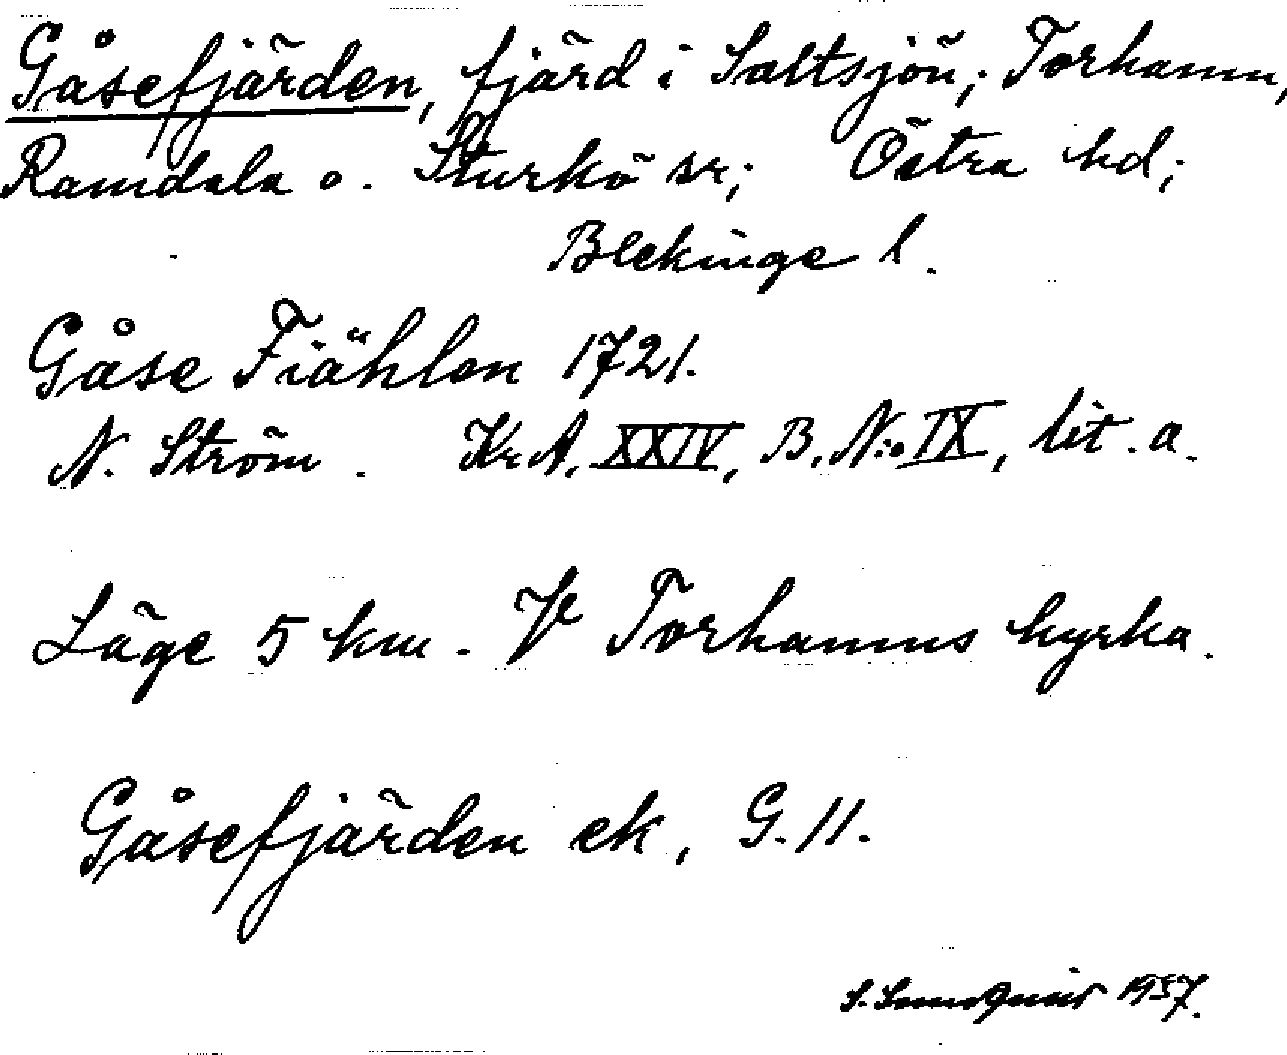 Gåsefjärden, fjärd i Saltsjön; Torhamn,
Ramdala o. Sturkö sr; Östra hd;
Blekinge l.
Gåse Fiählon 1721.
N. Ström. Kr.A. XXIV, B. N:o IX, lit. a.
Läge 5 km. V Torhamns kyrka.
Gåsefjärden ek, G. 11.
1957.